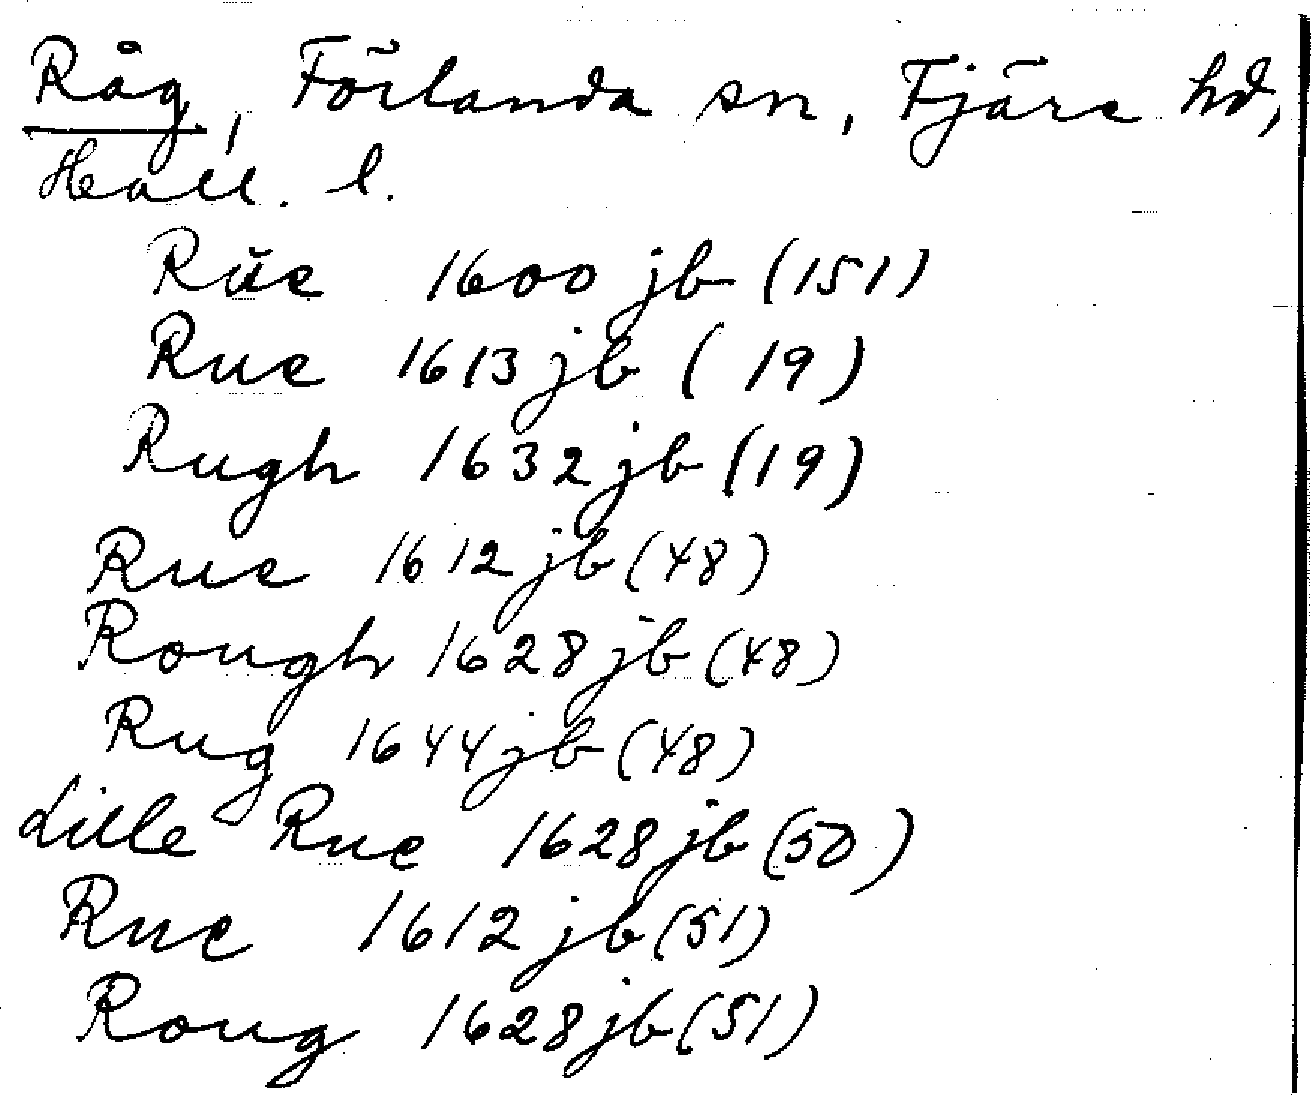 Råg, Förlanda sn, Fjäre hd,
Hall. l.
Rŭe 1600 jb (151)
Rue 1613 jb (19)
Rugh 1632 jb (19)
Rue 1612 jb (48)
Rough 1628 jb (48)
Rug 1644 jb (48)
Lille Rue 1628 jb (50)
Rue 1612 jb (51)
Roug 1628 jb (51)